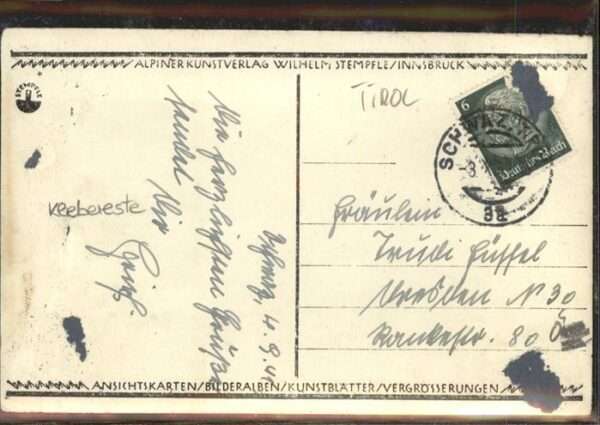 ALPINER KUNSTVERLAG WILHELM STEMPFLE/INNSBRUCK
STEMPFLE
TIROL
6
Deutsches Reich
SCHWAZ
8a
Schwaz, 4. 9. 41
Die herzlichsten Grüße
sendet Dir
verbereste
Fräulein
Trudi Füssel
Dresden N 30
Rankestr. 80
ANSICHTSKARTEN/BILDERALBEN/KUNSTBLÄTTER/VERGRÖSSERUNGEN